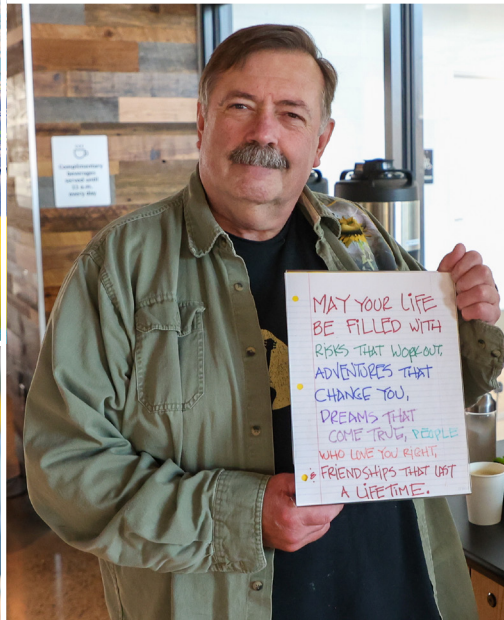 Complimentary
beverages
served until
11 a.m.
every day
MAY YOUR LIFE
BE FILLED WITH
RISKS THAT WORK OUT,
ADVENTURES THAT
CHANGE YOU,
DREAMS THAT
COME TRUE, PEOPLE
WHO LOVE YOU RIGHT,
FRIENDSHIPS THAT LAST
A LIFETIME.